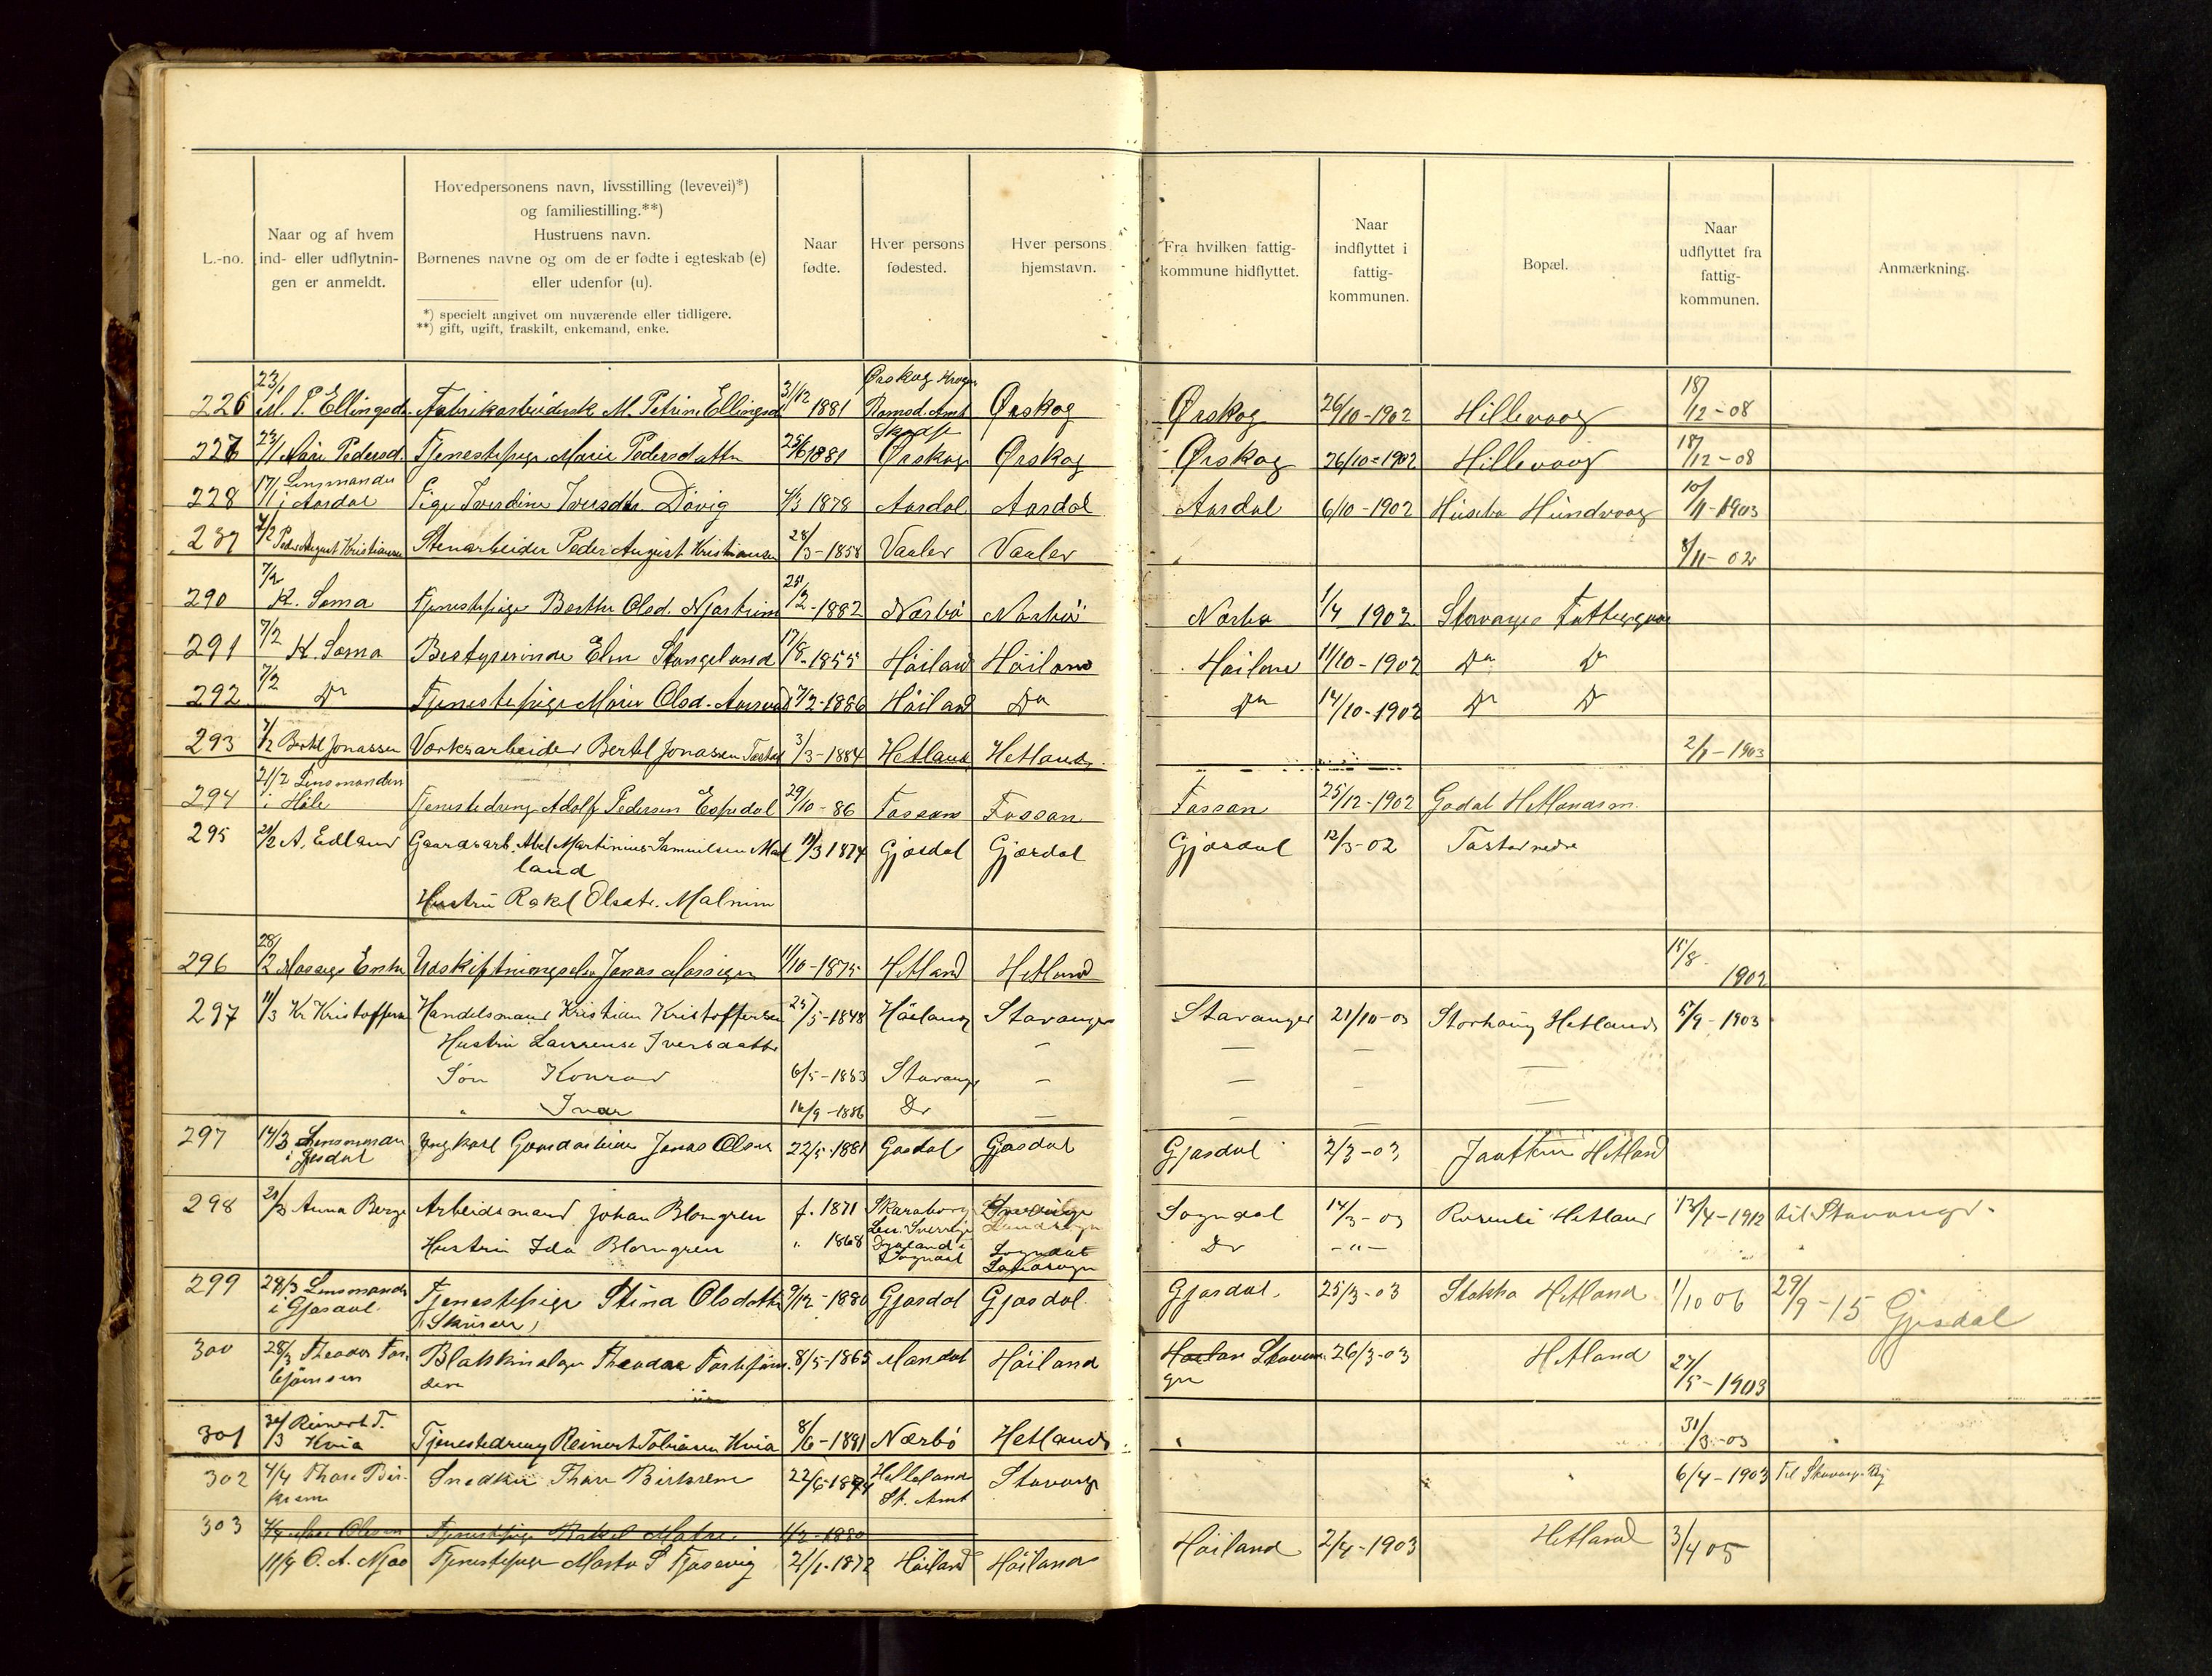 L.-no.
Naar og af hvem
ind- eller udflytnin-
gen er anmeldt.
Hovedpersonens navn, livsstilling (levevei)*)
og familiestilling.**)
Hustruens navn.
Børnenes navne og om de er fødte i egteskab (e)
eller udenfor (u).
*) specielt angivet om nuværende eller tidligere.
**) gift, ugift, fraskilt, enkemand, enke.
Naar
fødte.
Hver persons
fødested.
Hver persons
hjemstavn.
Fra hvilken fattig-
kommune hidflyttet.
Naar
indflyttet i
fattig-
kommunen.
Bopæl.
Naar
udflyttet fra
fattig-
kommunen.
Anmærkning.
226 23/1 M. P. Ellingsd. Fabrikarbeidersk M. Petrine Ellingsd 31/12 1881 Ørskog Romsd. Amt Ørskog Ørskog 26/10-1902 Hillevaag 18/12-08
227 23/1 Pedersd. Tjenestepige Marie Pedersdatter 25/6 1881 Ørskog Ørskog Ørskog 26/10-1902 Hillevaag 18/12-08
228 17/1 Lensmanden i Aardal Pige Iverdine Iversdtr Døvig 4/3 1878 Aardal Aardal Aardal 6/10-1902 Husebø Hundvaag 10/11-1903
7/2 Peder August Kristiansen Stenarbeider Peder August Kristiansen 28/3-1858 Vaaler Vaaler 8/11-02
290 7/2 K. Soma Tjenestepige Berthe Olsd. Njærheim 25/2-1882 Nærbö Nærbö Nærbø 1/4 1902 Stavanger Fattiggaard
291 7/2 K. Soma Bestyrerinde Elen Stangeland 17/8-1855 Höiland Höiland Höiland 11/10-1902 Do Do
292 7/2 Do Tjenestepige Marie Olsd. 7/2-1886 Höiland Do Do 14/10-1902 Do Do
293 7/2 Bertel Jonassen Værksarbeider Bertel Jonassen Tastad 3/3-1884 Hetland Hetland 2/1-1903
294 21/2 Lensmanden i Höle Tjenestedreng Adolf Pedersen Espedal 29/10-86 Fossan Fossan Fossan 25/12-1902 Godal Hetland
295 A. Edland Gaardsarb. Abel Martinius Samuelsen Mad 11/3 1874 Gjesdal Gjesdal Gjesdal 12/3-02 Tastad nedre
land
Hustru Rakel Olsdtr. Malmim
296 28/2 Udskiftningselev Jonas 11/10-1875 Hetland Hetland 15/8 1902
297 11/3 Kr Kristoffersen Handelsmand Kristian Kristoffersen 25/5-1848 Höiland Stavanger Stavanger 21/10-03 Storhaug Hetland 5/9-1903
Hustru Laurense Iversdatter — — —
Søn Konrad 6/5-1883 Stavanger — — — —
" Ivar 16/9-1886 Do — — — —
297 14/3 Lensmanden i Gjesdal Ungkarl Gaardarbeider Jonas Olsen 22/5-1881 Gjesdal Gjesdal Gjesdal 2/3-03 Jaatten Hetland
298 21/3 Anna Berge Arbeidsmand Johan Blomgren f. 1871 Skaraborg Len. Sverrige Sogndal 14/3-03 Rosenli Hetland 13/4-1912 til Stavanger
Hustru Ida Blomgren " 1868 Sogndal Sogndal Do -"-
299 29/3 Lensmanden i Gjesdal Tjenestepige Stina Olsdatter 9/12-1880 Gjesdal Gjesdal Gjesdal 25/3-03 Stokka Hetland 1/10 06 29/9-15 Gjesdal
300 28/3 Theodor Torbjörnsen Theodor 8/5-1865 Mandal Höiland Stavanger 26/3-03 Hetland 27/5-1903
301 30/3 Reinert T. Kvia Tjenestedreng Reinert Tobiasen Kvia 8/6-1891 Nærbö Hetland 31/3-03
302 4/4 Thore Birkrem Snedker Thore Birkrem 22/6-1874 Helleland St. Amt Stavanger 6/4-1903 Til Stavanger By
303 4/4 Olsen Tjenestepige Rakel 1/2-1880
11/4 O. A. Njaa Tjenestepige Marta S 21/1-1872 Höiland Höiland Höiland 2/4-1903 Hetland 3/4 05